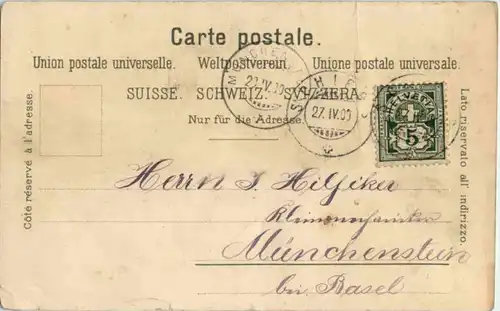 Carte postale.
Union postale universelle. Weltpostverein. Unione postale universale.
SUISSE. SCHWEIZ. SVIZZERA.
Nur für die Adresse.
Côté réservé à l'adresse.
Lato riservato all' indirizzo.
27.IV.00
27.IV.00
HELVETIA
5
Herrn J. Hilfiker
Kleinmechaniker
Münchenstein
bei Basel